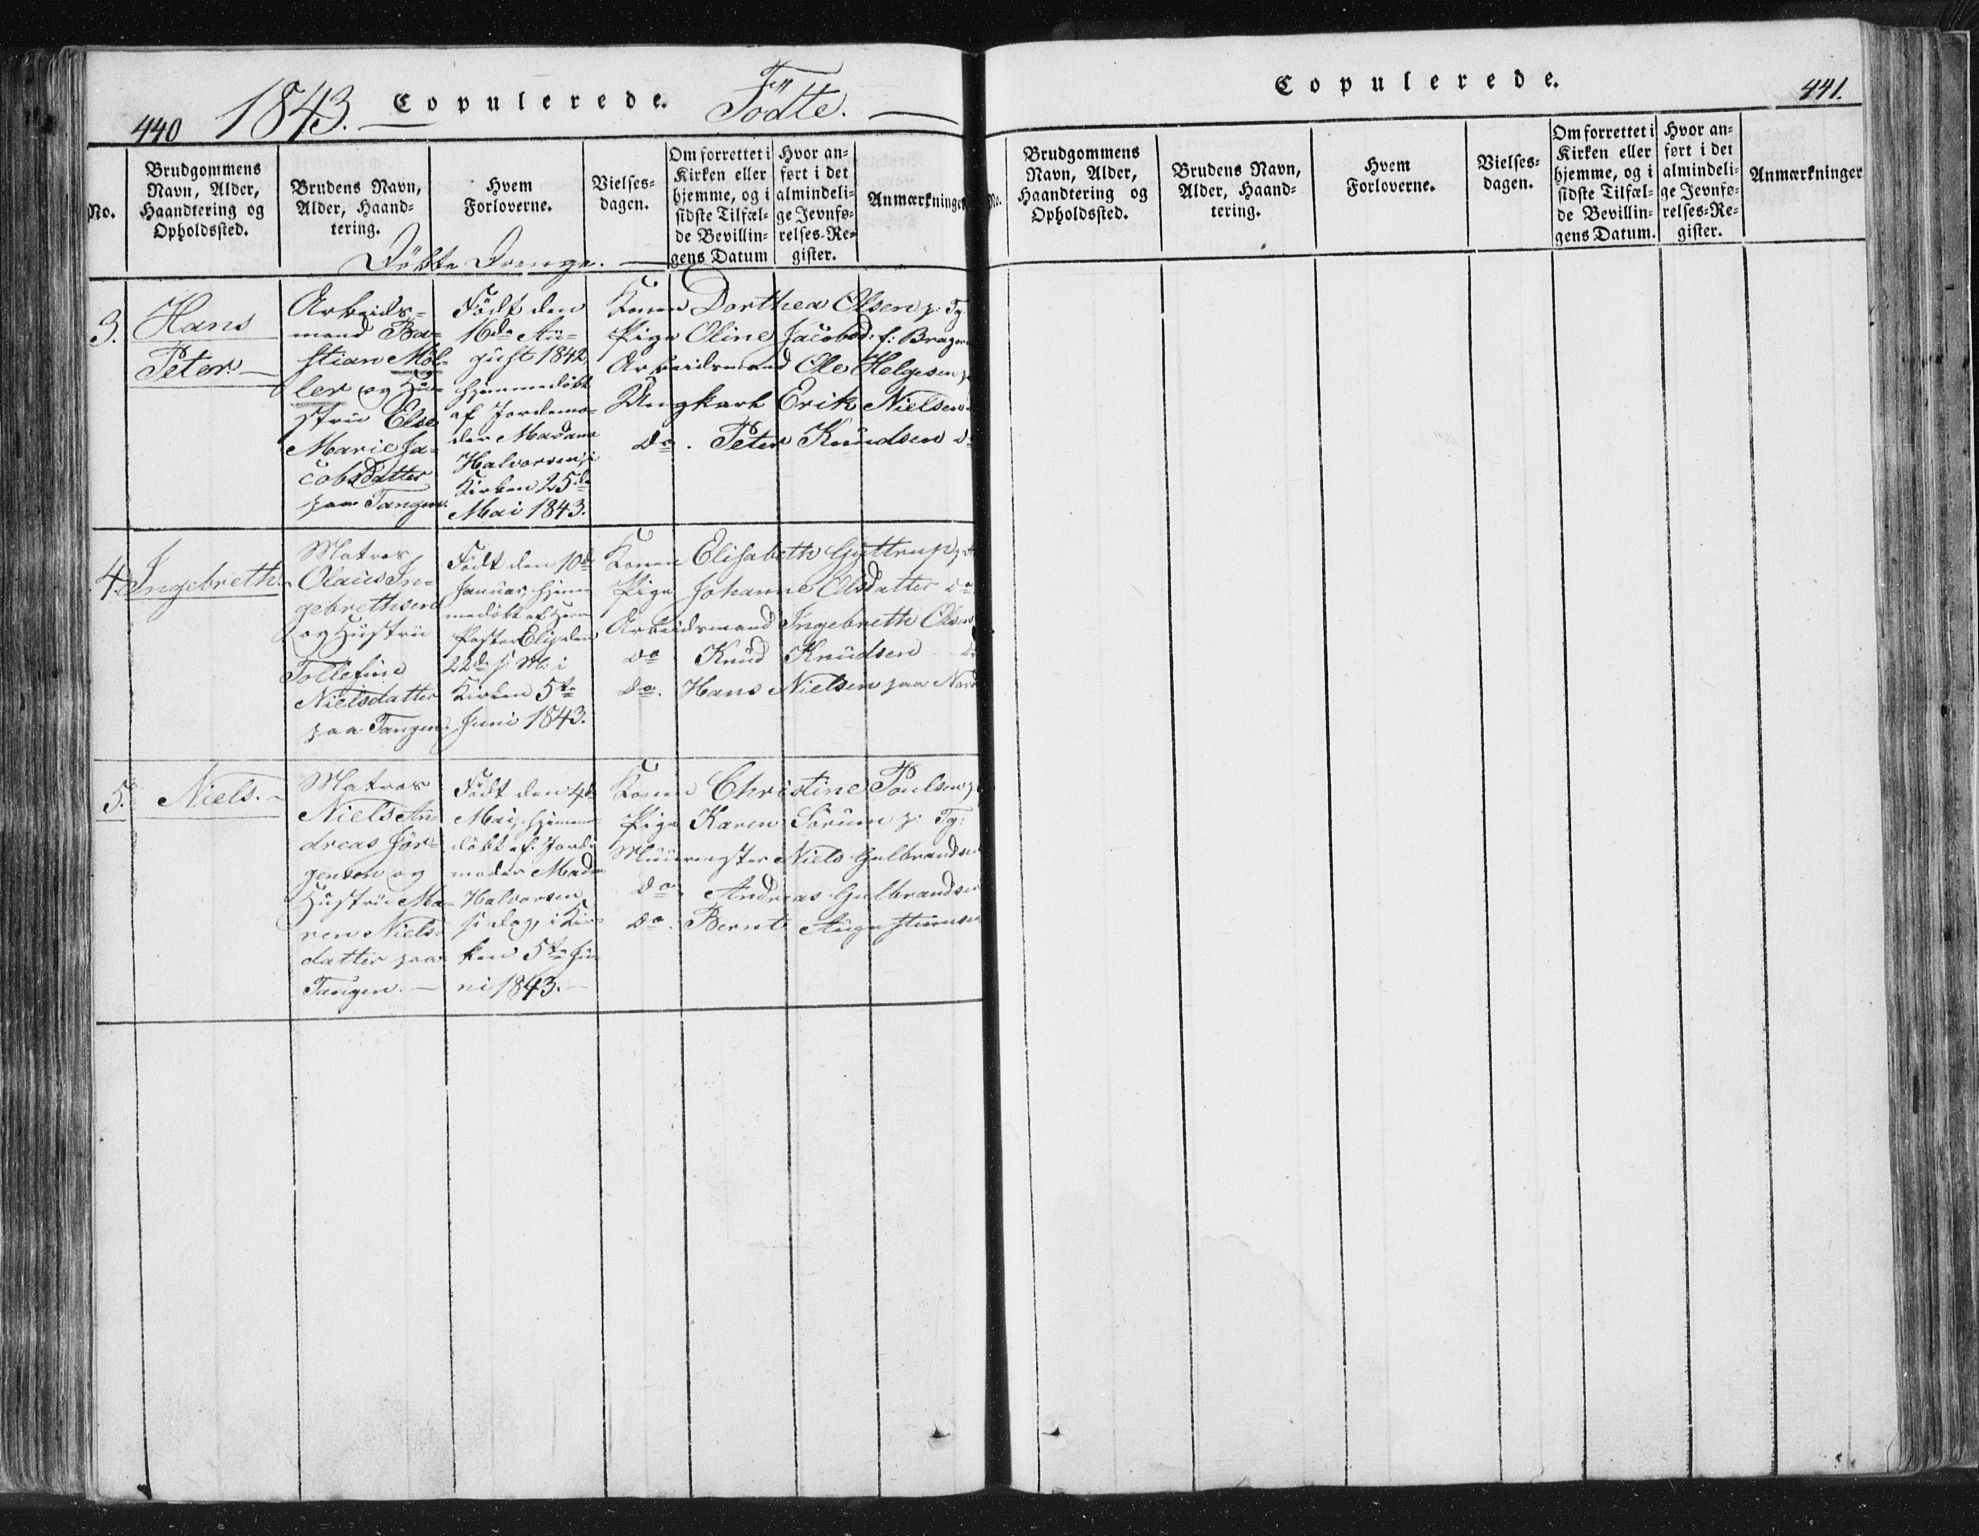 440 1843. Copulerede. Födte.
No.
Brudgommens
Navn, Alder,
Haandtering og
Opholdssted.
Brudens Navn,
Alder, Haand-
tering.
Hvem
Forloverne.
Vielses-
dagen.
Om forrettet i
Kirken eller
hjemme, og i
sidste Tilfæl-
de Bevillin-
gens Datum
Hvor an-
ført i det
almindeli-
ge Jevnfø-
relses-Re-
gister.
Anmærkninger
Döbte Drenge.
3.
Hans
Peter
Arbeids-
mand Ba-
stian Möl-
ler og Hu-
strü Else
Marie Ja-
cobsdatter
paa Tangen.
Födt den
16de Aü-
gust 1842,
hjemmedöbt
af Jordemo-
der Madame
Halvorsen, i
Kirken 25de
Mai 1843.
Konen Dorthea Olsen p: Tg
Pige Oline Jacobsd: f: Brager
Arbeidsmand Ole Helgesen
Ungkarl Erik Nielsen
do. Peter Knüdsen do
4.
Ingebreth
Matros
Olaus In-
gebrethsen
og Hüstrü
Tollefine
Nielsdatter
paa Tangen.
Födt den 10de
Januar, hjem-
medöbt af Herr
Pastor den
22de s. M. i
Kirken 5te
Juni 1843.
Konen Elisabeth Gyttrup
Pige Johanne Olsdatter do
Arbeidsmand Ingebreth Olsen
do Knüd Knüdsen do
do. Hans Nielsen paa Nord
5.
Niels.
Matros
Niels An-
dreas Jör-
gensen og
Hüstrü Ma-
ren Niels-
datter paa
Tangen.
Födt den 4de
Mai, hjemme-
döbt af Jorde-
moder Mad
Halvorsen
s: dag, i Kir-
ken 5te Jü-
ni 1843.
Konen Christine Poulsen
Pige Karen Sorum p: Tg:
Müürmester Niels Gulbrandsen
do Andreas Gulbrandsen
do. Bernt Augustinusen
Copulerede. 441.
No.
Brudgommens
Navn, Alder,
Haandtering og
Opholdssted.
Brudens Navn,
Alder, Haand-
tering.
Hvem
Forloverne.
Vielses-
dagen.
Om forrettet i
Kirken eller
hjemme, og i
sidste Tilfæl-
de Bevillin-
gens Datum.
Hvor an-
ført i det
almindeli-
ge Jevnfø-
relses-Re-
gister.
Anmærkninger